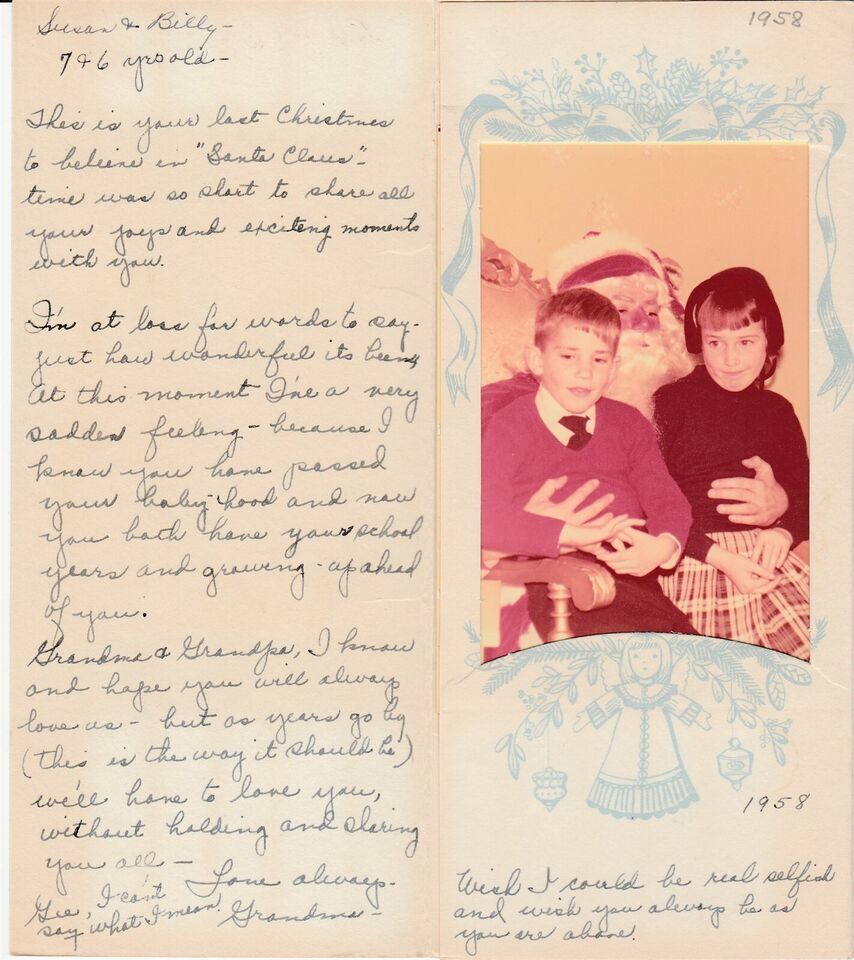 Susan & Billy -
7 & 6 yrs old -
This is your last Christmas
to believe in "Santa Claus" -
time was so short to share all
your joys and exciting moments
with you.
I'm at loss for words to say -
just how wonderful its been,
At this moment I've a very
sadden feeling - because I
know you have passed
your baby-hood and now
you both have your school
years and growing-up ahead
of you.
Grandma & Grandpa, I know
and hope you will always
love us - but as years go by
(this is the way it should be)
we'll have to love you,
without holding and sharing
you all -
Love always -
Grandma -
Gee, I can't
say what I mean.
1958
1958
Wish I could be real selfish
and wish you always be as
you are above.